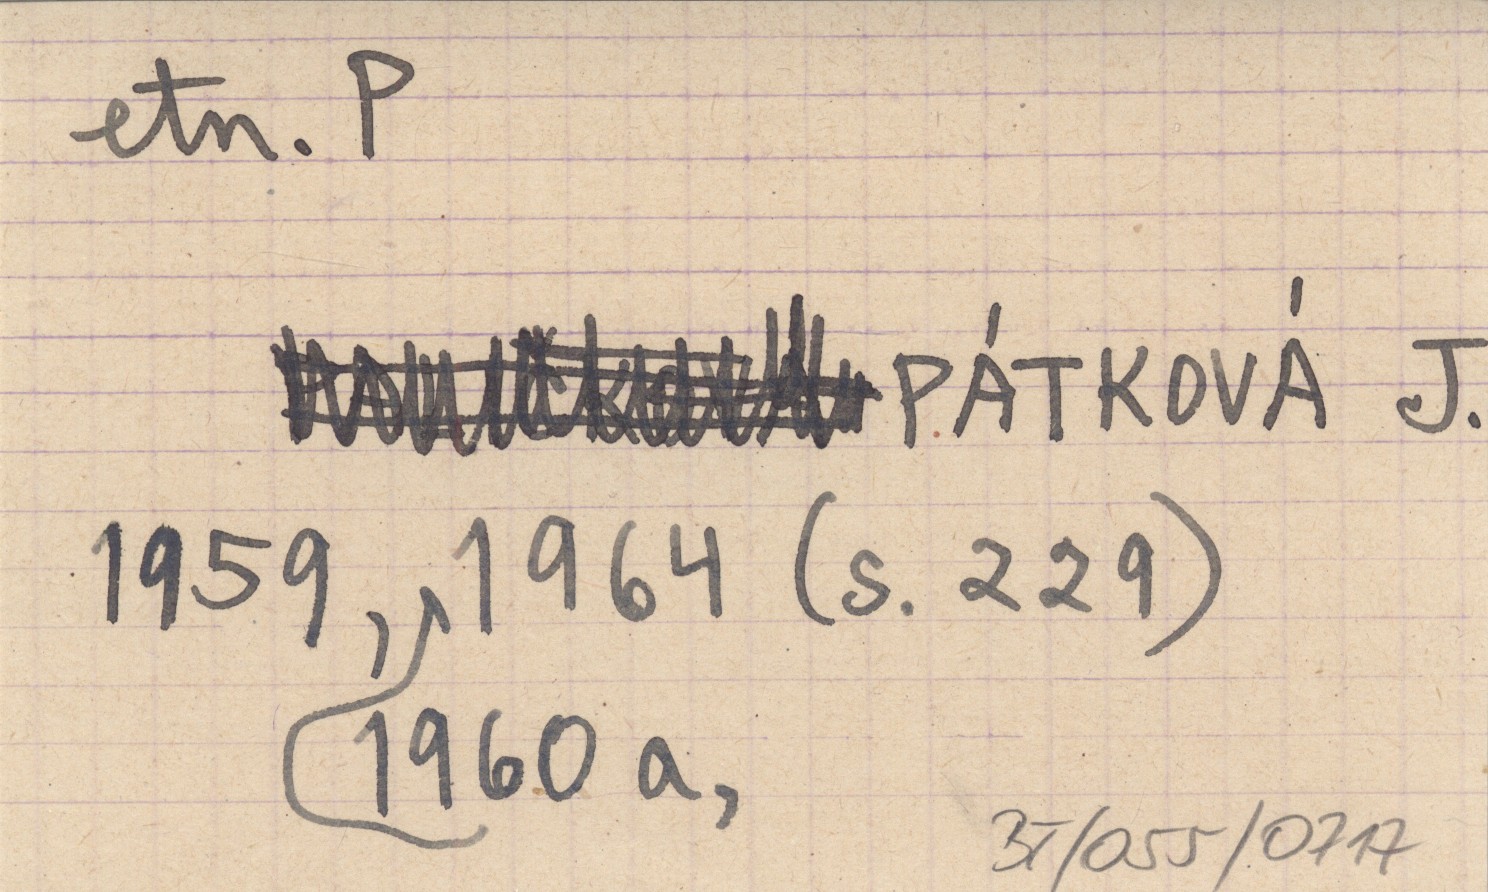 etn. P
PÁTKOVÁ J.
1959, 1964 (s. 229)
1960 a,
BI/055/0717